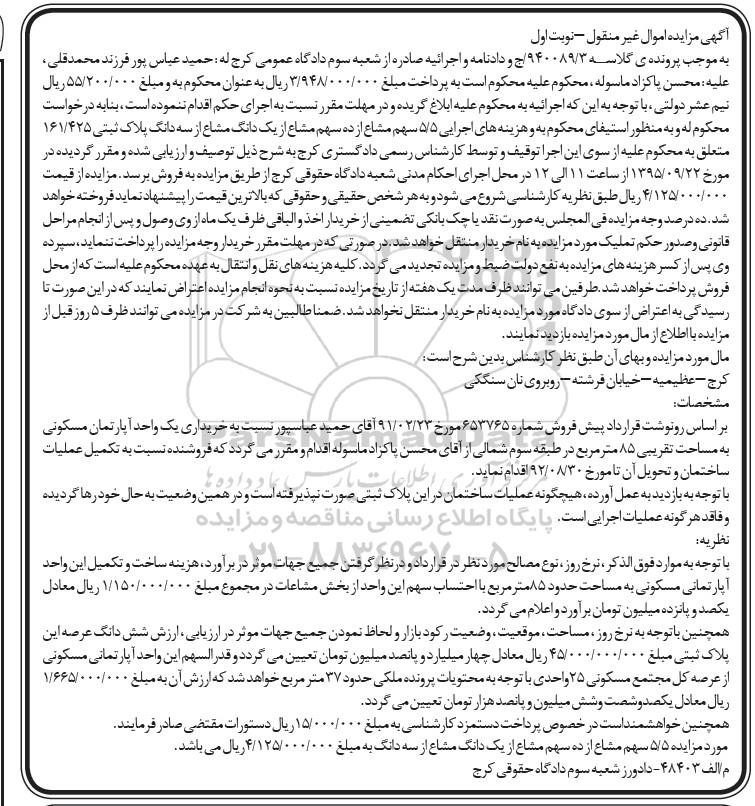 آگهی مزایده اموال غیر منقول – نوبت اول
به موجب پرونده ی کلاسه ۹۴۰۰۸۹/۳/ج و دادنامه و اجرائیه صادره از شعبه سوم دادگاه عمومی کرج له : حمید عباس پور فرزند محمدقلی ،
علیه : محسن پاکزاد ماسوله ، محکوم علیه محکوم است به پرداخت مبلغ ۳/۹۴۸/۰۰۰/۰۰۰ ریال به عنوان محکوم به و مبلغ ۵۵/۲۰۰/۰۰۰ ریال
نیم عشر دولتی ، با توجه به این که اجرائیه به محکوم علیه ابلاغ گریده و در مهلت مقرر نسبت به اجرای حکم اقدام ننموده است ، بنابه درخواست
محکوم له و به منظور استیفای محکوم به و هزینه های اجرایی ۵/۵ سهم مشاع از ده سهم مشاع از یک دانگ مشاع از سه دانگ پلاک ثبتی ۱۶۱/۴۲۵
متعلق به محکوم علیه از سوی این اجرا توقیف و توسط کارشناس رسمی دادگستری کرج به شرح ذیل توصیف و ارزیابی شده و مقرر گردیده در
مورخ ۱۳۹۵/۰۹/۲۲ از ساعت ۱۱ الی ۱۲ در محل اجرای احکام مدنی شعبه دادگاه حقوقی کرج از طریق مزایده به فروش برسد. مزایده از قیمت
۴/۱۲۵/۰۰۰/۰۰۰ ریال طبق نظریه کارشناسی شروع می شود و به هر شخص حقیقی و حقوقی که بالاترین قیمت را پیشنهاد نماید فروخته خواهد
شد. ده درصد وجه مزایده فی المجلس به صورت نقد یا چک بانکی تضمینی از خریدار اخذ و الباقی ظرف یک ماه از وی وصول و پس از انجام مراحل
قانونی وصدور حکم تملیک مورد مزایده به نام خریدار منتقل خواهد شد. در صورتی که در مهلت مقرر خریدار وجه مزایده را پرداخت ننماید، سپرده
وی پس از کسر هزینه های مزایده به نفع دولت ضبط و مزایده تجدید می گردد. کلیه هزینه های نقل و انتقال به عهده محکوم علیه است که از محل
فروش پرداخت خواهد شد .طرفین می توانند ظرف مدت یک هفته از تاریخ مزایده نسبت به نحوه انجام مزایده اعتراض نمایند که در این صورت تا
رسیدگی به اعتراض از سوی دادگاه مورد مزایده به نام خریدار منتقل نخواهد شد. ضمنا طالبین به شرکت در مزایده می توانند ظرف ۵ روز قبل از
مزایده با اطلاع از مال مورد مزایده بازدید نمایند.
مال مورد مزایده و بهای آن طبق نظر کارشناس بدین شرح است :
کرج – عظیمیه – خیابان فرشته – روبروی نان سنگکی
مشخصات:
بر اساس رونوشت قرارداد پیش فروش شماره ۶۵۳۷۶۵ مورخ ۹۱/۰۲/۲۳ آقای حمید عباسپور نسبت به خریداری یک واحد آپارتمان مسکونی
به مساحت تقریبی ۸۵ متر مربع در طبقه سوم شمالی از آقای محسن پاکزاد ماسوله اقدام و مقرر می گردد که فروشنده نسبت به تکمیل عملیات
ساختمان و تحویل آن تا مورخ ۹۲/۰۸/۳۰ اقدام نماید.
با توجه به بازدید به عمل آورده ، هیچگونه عملیات ساختمان در این پلاک ثبتی صورت نپذیرفته است و در همین وضعیت به حال خود رها گردیده
و فاقد هر گونه عملیات اجرایی است.
نظریه:
با توجه به موارد فوق الذکر ، نرخ روز ، نوع مصالح مورد نظر در قرارداد و در نظر گرفتن جمیع جهات موثر در برآورد ، هزینه ساخت و تکمیل این واحد
آپارتمانی مسکونی به مساحت حدود ۸۵ متر مربع با احتساب سهم این واحد از بخش مشاعات در مجموع مبلغ ۱/۱۵۰/۰۰۰/۰۰۰ ریال معادل
یکصد و پانزده میلیون تومان برآورد و اعلام می گردد.
همچنین با توجه به نرخ روز ، مساحت ، موقعیت ، وضعیت رکود بازار و لحاظ نمودن جمیع جهات موثر در ارزیابی ، ارزش شش دانگ عرصه این
پلاک ثبتی مبلغ ۴۵/۰۰۰/۰۰۰/۰۰۰ ریال معادل چهار میلیارد و پانصد میلیون تومان تعیین می گردد و قدرالسهم این واحد آپارتمانی مسکونی
از عرصه کل مجتمع مسکونی ۲۵ واحدی با توجه به محتویات پرونده ملکی حدود ۳۷ متر مربع خواهد شد که ارزش آن به مبلغ ۱/۶۶۵/۰۰۰/۰۰۰
ریال معادل یکصد و شصت و شش میلیون و پانصد هزار تومان تعیین می گردد.
همچنین خواهشمند است در خصوص پرداخت دستمزد کارشناسی به مبلغ ۱۵/۰۰۰/۰۰۰ ریال دستورات مقتضی صادر فرمایند.
مورد مزایده ۵/۵ سهم مشاع از ده سهم مشاع از یک دانگ مشاع از سه دانگ به مبلغ ۴/۱۲۵/۰۰۰/۰۰۰ ریال می باشد.
م/الف ۴۸۴۰۳- دادورز شعبه سوم دادگاه حقوقی کرج
ParsNamadData
پایگاه اطلاع رسانی مناقصه و مزایده
۰۲۱-۸۸۳۴۹۶۷۰-۵